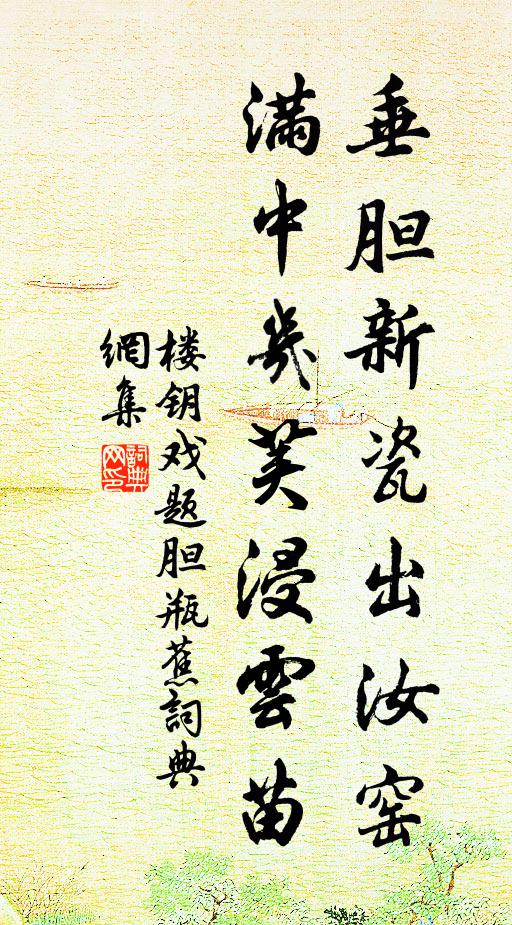 垂胆新瓷出汝窑
满中几荚浸云苗
楼钥戏题胆瓶蕉詞典
網集
詞典网印